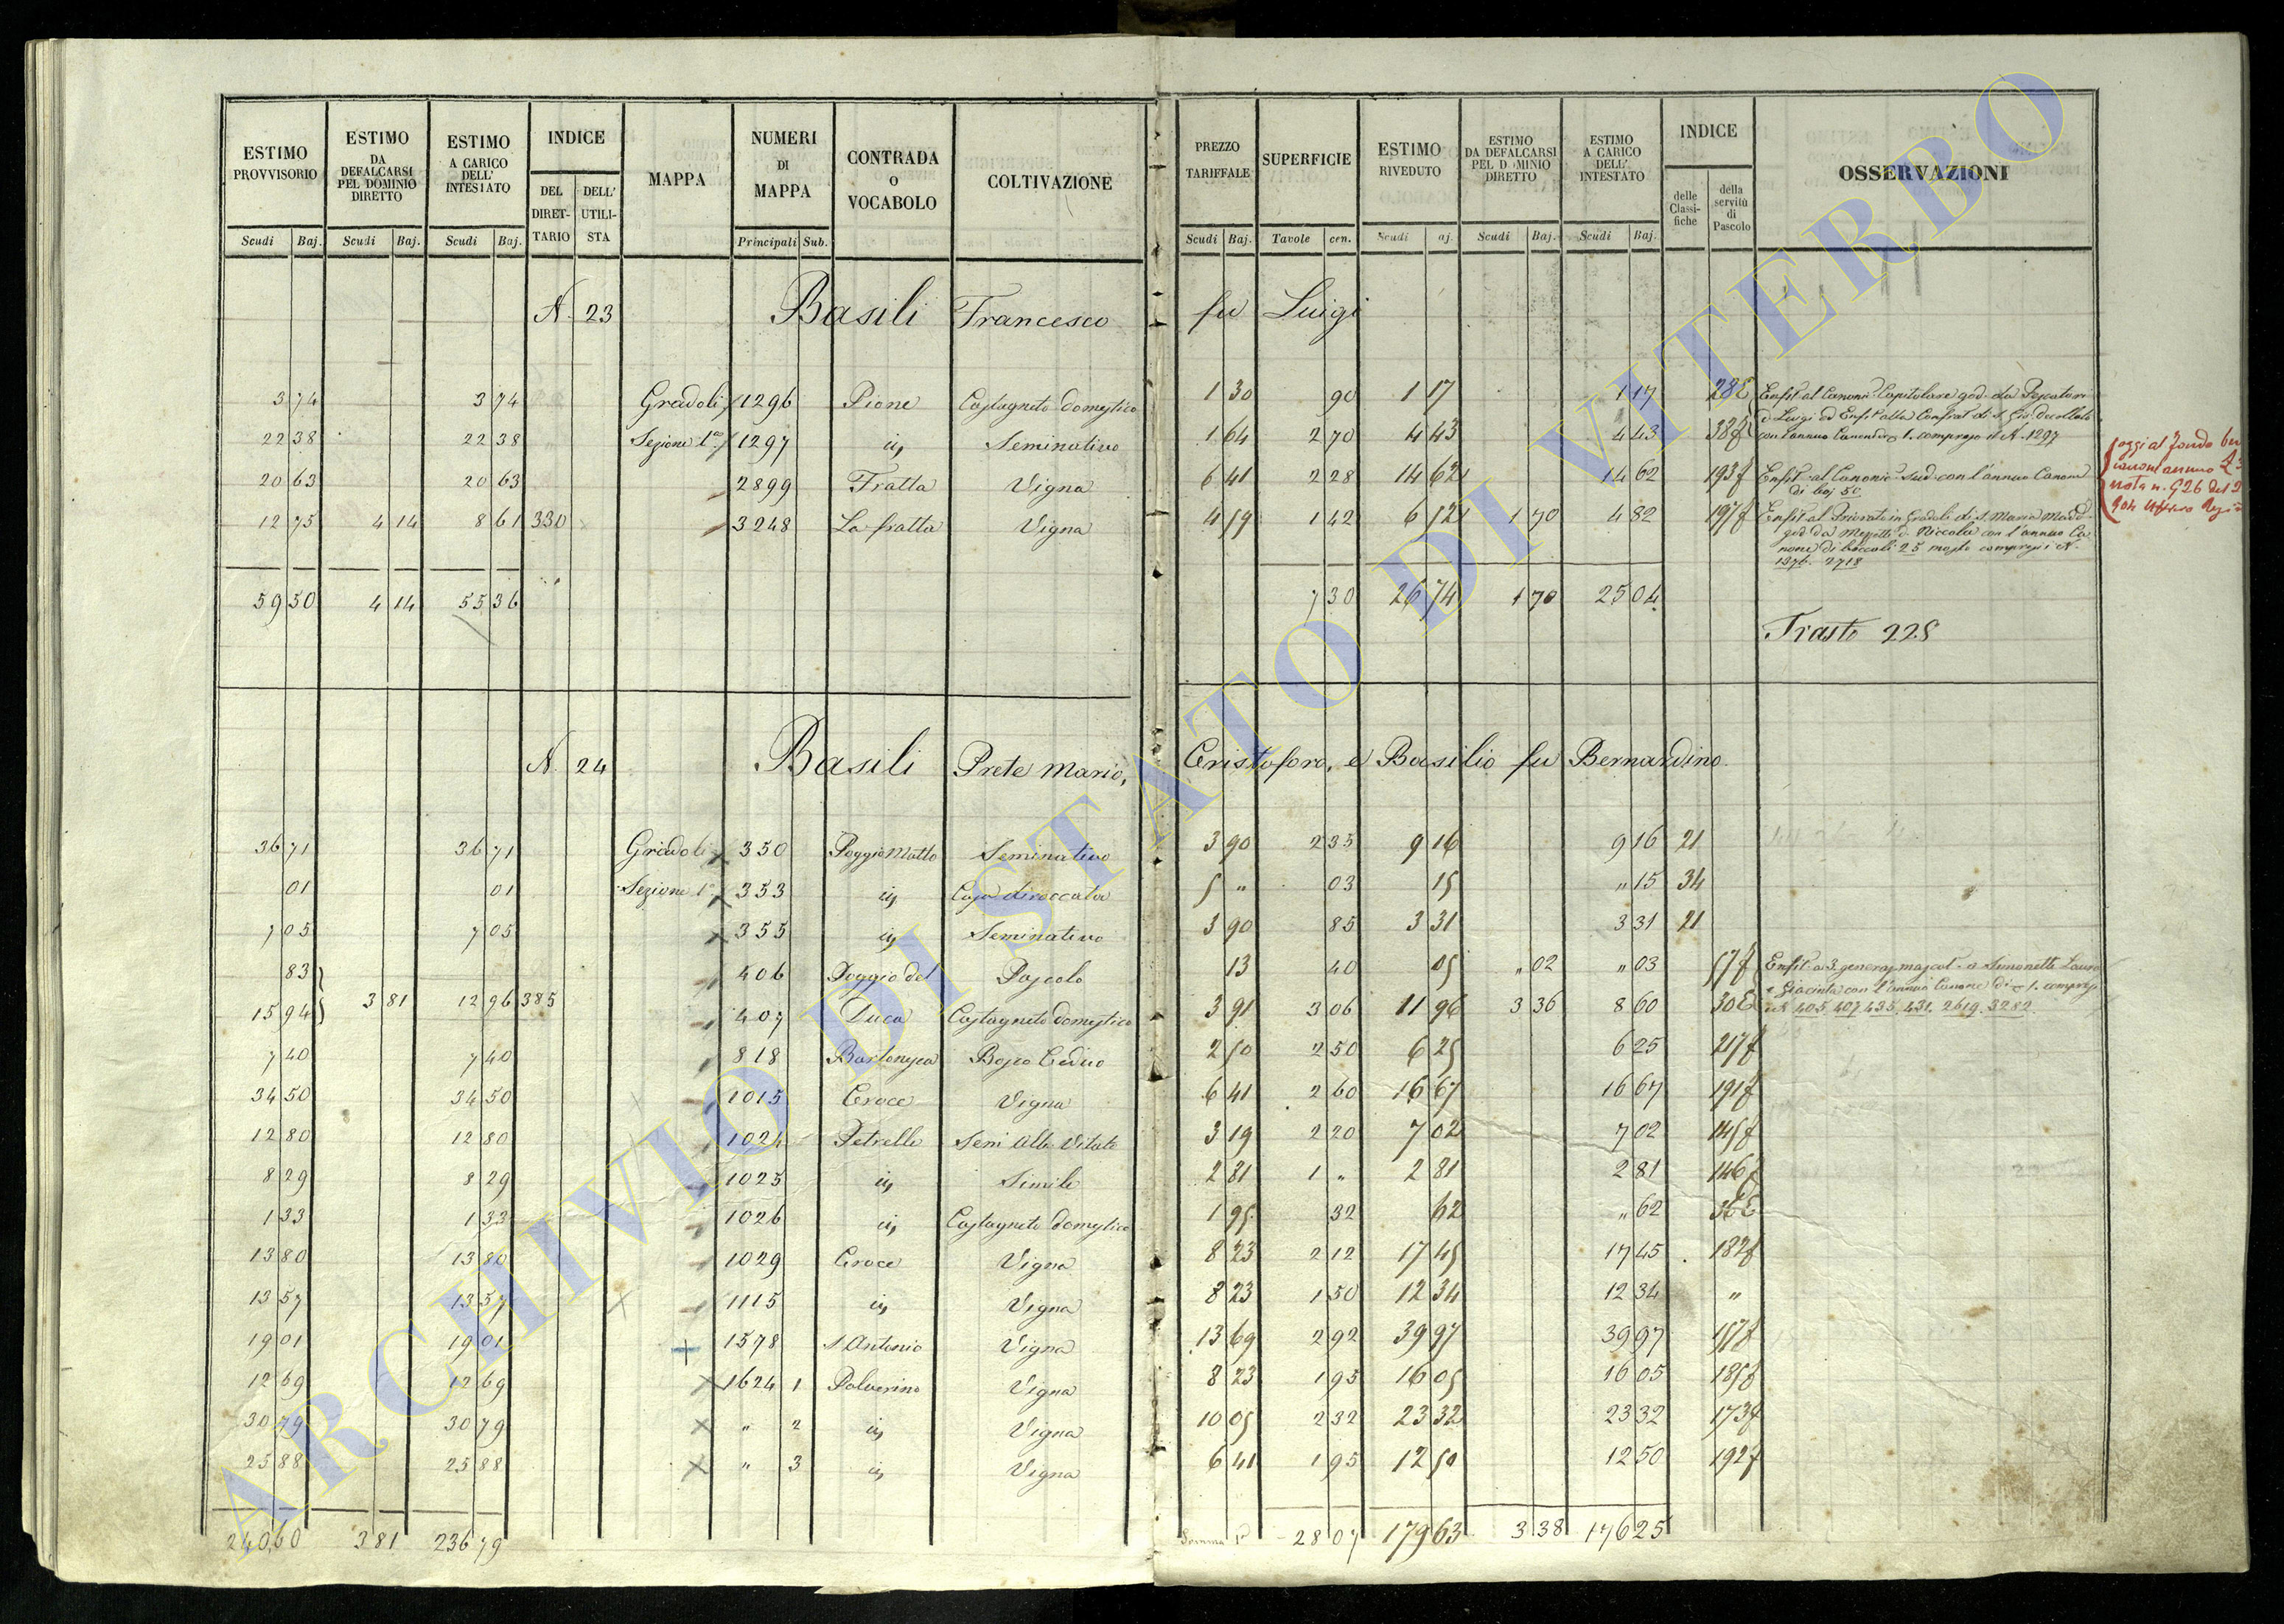 ESTIMO PROVVISORIO | ESTIMO DA DEFALCARSI PEL DOMINIO DIRETTO | ESTIMO A CARICO DELL' INTESTATO | INDICE | MAPPA | NUMERI DI MAPPA | CONTRADA O VOCABOLO | COLTIVAZIONE | PREZZO TARIFFALE | SUPERFICIE | ESTIMO RIVEDUTO | ESTIMO DA DEFALCARSI PEL DOMINIO DIRETTO | ESTIMO A CARICO DELL' INTESTATO | INDICE | OSSERVAZIONI
DEL DIRETTARIO | DELL' UTILISTA | delle Classifiche | della servitù di Pascolo
Scudi | Baj. | Scudi | Baj. | Scudi | Baj. | Principali | Sub. | Scudi | Baj. | Tavole | cen. | Scudi | aj. | Scudi | Baj. | Scudi | Baj.
N. 23 Basili Francesco fu Luigi
3 74 | 3 74 | Gradoli | 1296 | Pione | Castagneto domestico | 1 30 | 90 | 1 17 | 1 17 | 28E
22 38 | 22 38 | Sezione 1a | 1297 | iij | Seminativo | 1 64 | 2 70 | 4 43 | 4 43 | 38f
20 63 | 20 63 | 2899 | Fratta | Vigna | 6 41 | 2 28 | 14 62 | 14 62 | 193f
12 75 | 4 14 | 8 61 | 330 | 3248 | La fratta | Vigna | 4 59 | 1 42 | 6 52 | 1 70 | 4 82 | 197f
59 50 | 4 14 | 55 36 | 7 30 | 26 74 | 1 70 | 25 04
Enfit. al Canoni. Capitolare god. da
d. Luigi ed Enfit. alla Confrat. di S. Gio. decollato
compreso il N. 1297
Enfit. al Canonic. Sud. con l'annuo Canone
di baj. 50
Enfit. al Priorato in Gradoli di S. Maria Madd.
god. da d. Niccola con l'annuo Ca
none di boccali 25 mosto compresi i N.
1376. 2718
oggi al Fondo
annuo
nota n. 926 del
Trasto 228
N. 24 Basili Prete Mario, Cristoforo, e Basilio fu Bernardino
36 71 | 36 71 | Gradoli | 350 | Poggio Matto | Seminativo | 3 90 | 2 35 | 9 16 | 9 16 | 21
01 | 01 | Sezione 1a | 353 | iij | Casa diroccata | 5 " | 03 | 15 | " 15 | 34
7 05 | 7 05 | 355 | iij | Seminativo | 3 90 | 85 | 3 31 | 3 31 | 21
83 | 406 | Poggio del | Pascolo | 13 | 40 | 05 | " 02 | " 03 | 57f | Enfit. a 3. generaz. mascol. a Simonetti Laura
15 94 | 3 81 | 12 96 | 385 | 407 | Duca | Castagneto domestico | 3 91 | 3 06 | 11 96 | 3 36 | 8 60 | 30E | e Giacinta con l'annuo Canone di 1. compresi
i N. 405. 407. 435. 431. 2619. 3282
7 40 | 7 40 | 818 | Bosco Ceduo | 2 50 | 2 50 | 6 25 | 6 25 | 217f
34 50 | 34 50 | 1015 | Croce | Vigna | 6 41 | 2 60 | 16 67 | 16 67 | 191f
12 80 | 12 80 | 1024 | Petrelle | Semi Alb. Vitato | 3 19 | 2 20 | 7 02 | 7 02 | 145f
8 29 | 8 29 | 1025 | iij | Simile | 2 81 | 1 " | 2 81 | 2 81 | 146f
1 33 | 1 33 | 1026 | iij | Castagneto domestico | 1 95 | 32 | 62 | " 62 | 36E
13 80 | 13 80 | 1029 | Croce | Vigna | 8 23 | 2 12 | 17 45 | 17 45 | 182f
13 57 | 13 57 | 1115 | iij | Vigna | 8 23 | 1 50 | 12 34 | 12 34 | "
19 01 | 19 01 | 1578 | S. Antonio | Vigna | 13 69 | 2 92 | 39 97 | 39 97 | 157f
12 69 | 12 69 | 1624 | 1 | Polverino | Vigna | 8 23 | 1 95 | 16 05 | 16 05 | 185f
30 79 | 30 79 | " | 2 | iij | Vigna | 10 05 | 2 32 | 23 32 | 23 32 | 173f
25 88 | 25 88 | " | 3 | iij | Vigna | 6 41 | 1 95 | 12 50 | 12 50 | 192f
240,60 | 3 81 | 236 79 | Somma | 28 07 | 179 63 | 3 38 | 176 25
ARCHIVIO DI STATO DI VITERBO